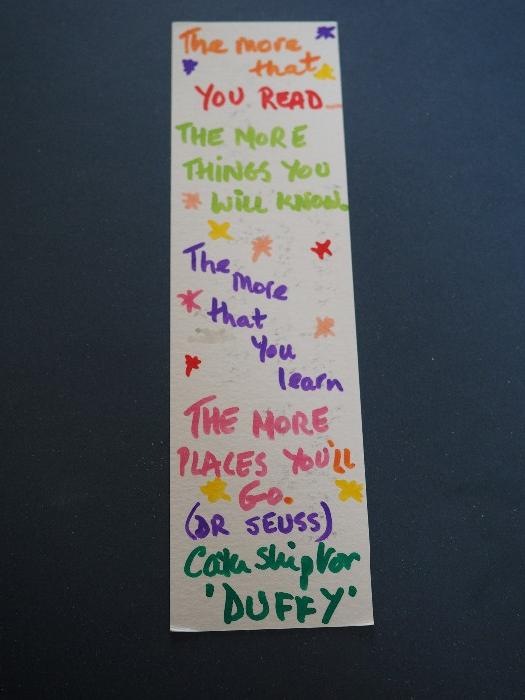 The more
that
YOU READ...
THE MORE
THINGS YOU
WILL KNOW.
The
More
that
You
learn
THE MORE
PLACES YOU'LL
GO.
(DR SEUSS)
'DUFFY'